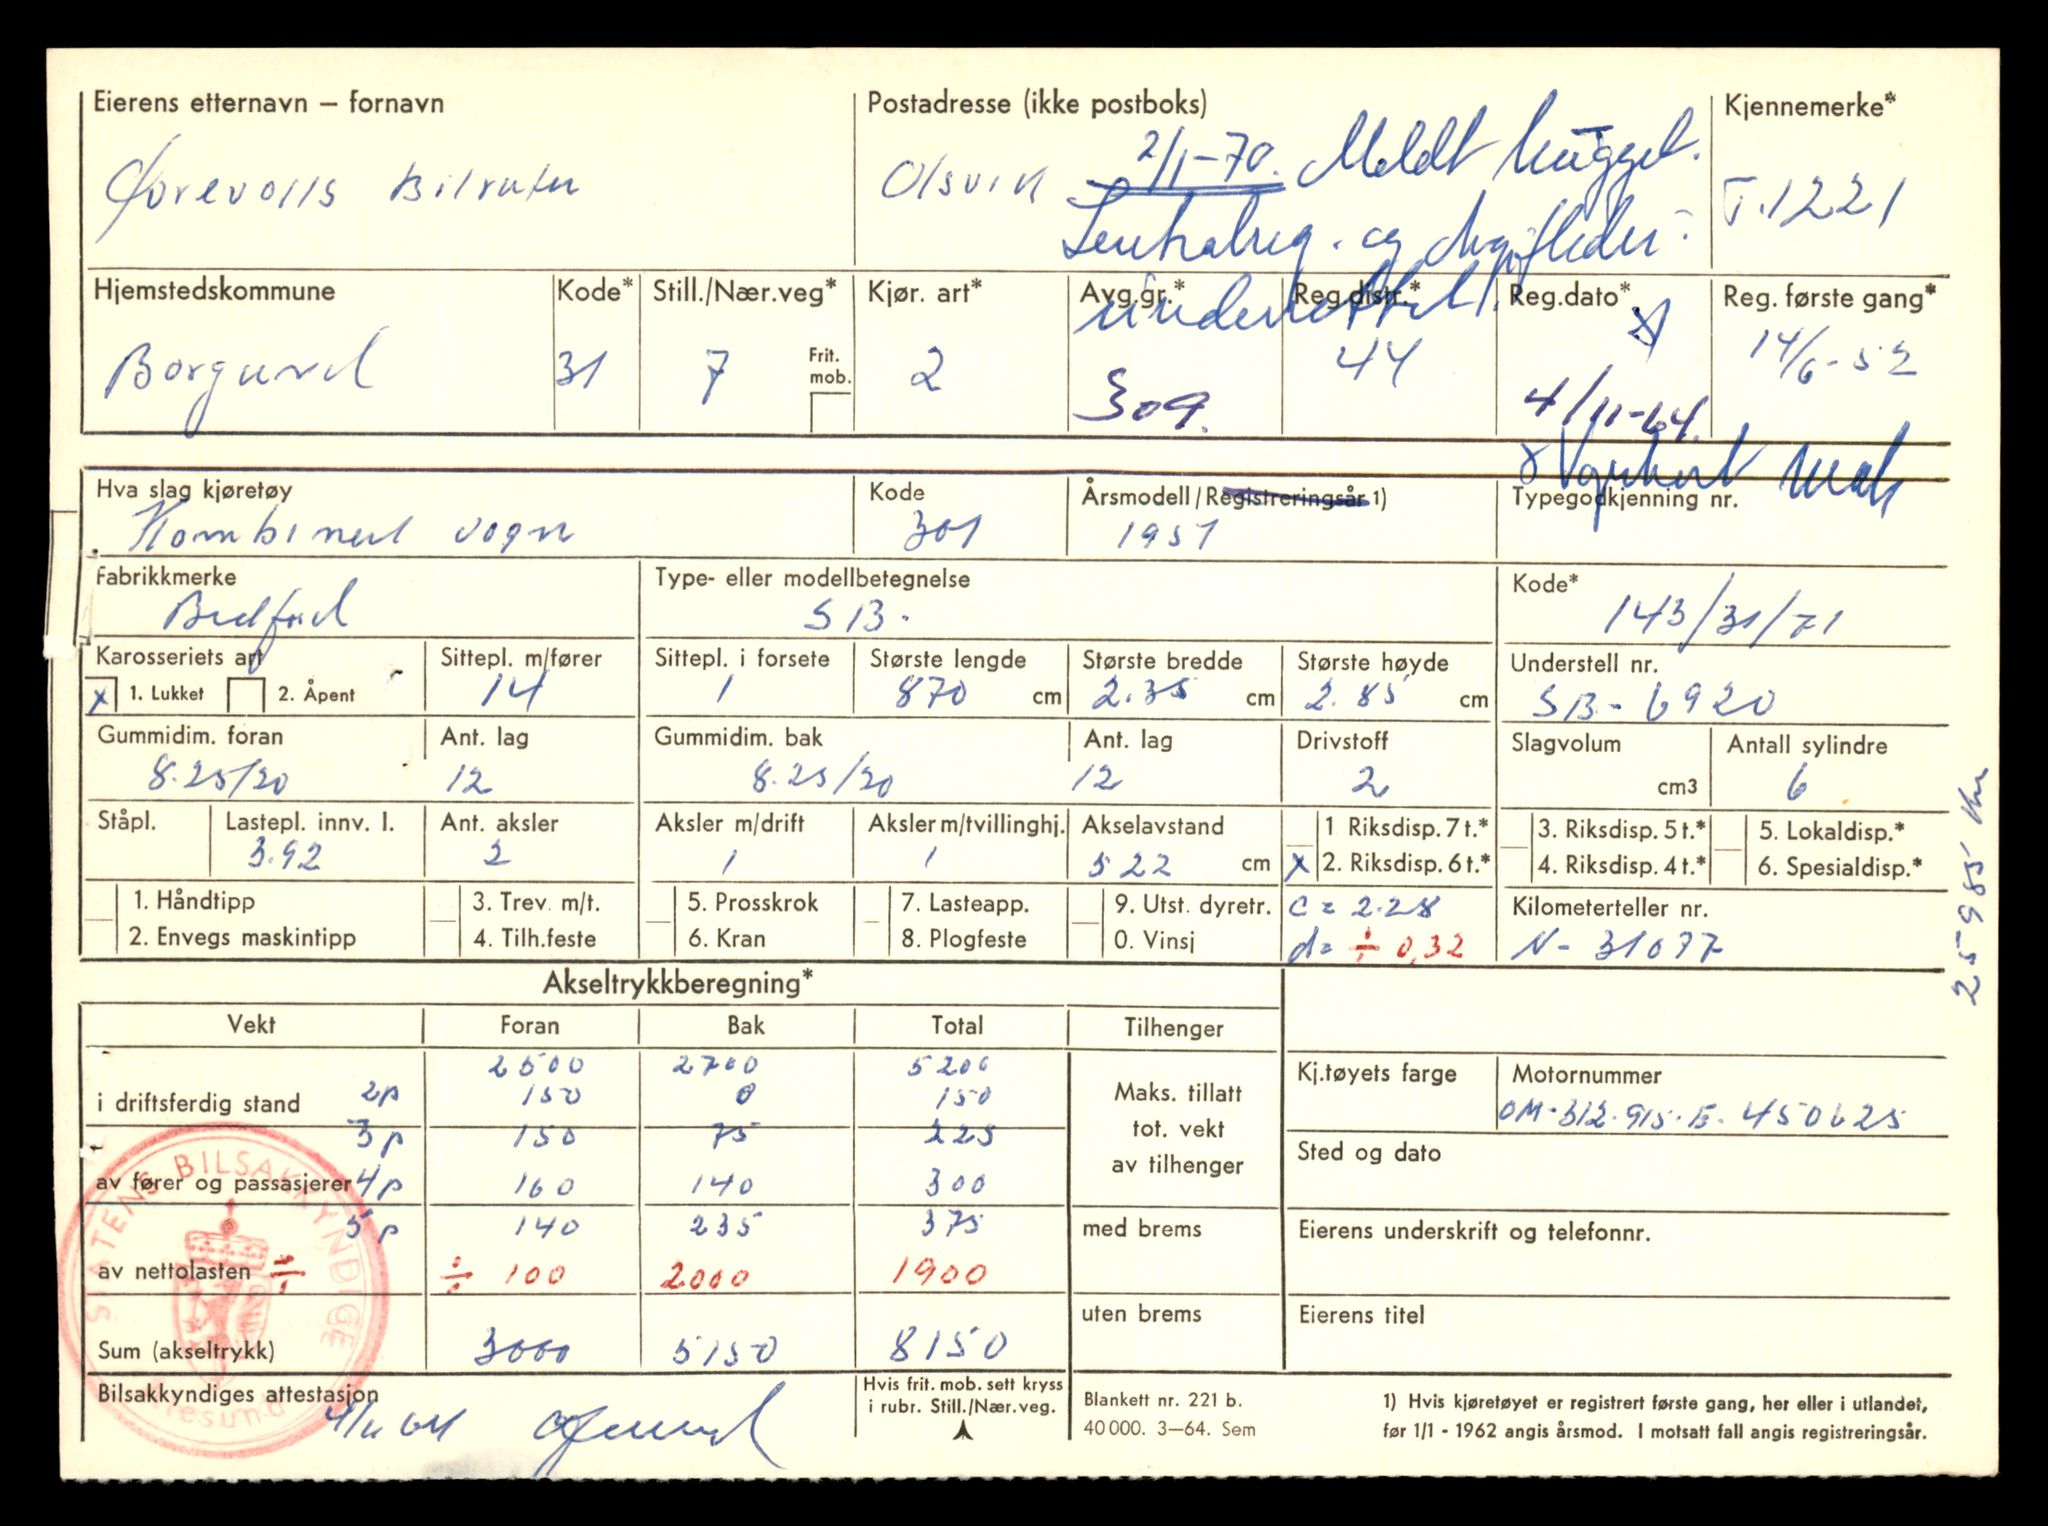 Eierens etternavn – fornavn Postadresse (ikke postboks) Kjennemerke*
Ørevolls Bilruter Olsvik 2/1-70. Meldt hugget. T.1221
Sentralreg. og Avgiftsdir.
underrettet.
Hjemstedskommune Kode* Still./Nær.veg* Kjør. art* Avg.gr.* Reg.distr.* Reg.dato* Reg. første gang*
Borgund 31 7 Frit. mob. 2 309. 44 4/11-64. 14/6-52
Vognkort
Hva slag kjøretøy Kode Årsmodell/Registreringsår 1) Typegodkjenning nr.
Kombinert vogn 301 1951
Fabrikkmerke Type- eller modellbetegnelse Kode*
Bedford SB. 143/31/71
Karosseriets art Sittepl. m/fører Sittepl. i forsete Største lengde Største bredde Største høyde Understell nr.
x 1. Lukket 2. Åpent 14 1 870 cm 2.35 cm 2.85 cm SB-6920
Gummidim. foran Ant. lag Gummidim. bak Ant. lag Drivstoff Slagvolum Antall sylindre
8.25/20 12 8.25/20 12 2 cm3 6
Ståpl. Lastepl. innv. l. Ant. aksler Aksler m/drift Aksler m/tvillinghj. Akselavstand 1 Riksdisp. 7 t.* 3. Riksdisp. 5 t.* 5. Lokaldisp.*
3.92 2 1 1 522 cm x 2. Riksdisp. 6 t.* 4. Riksdisp. 4 t.* 6. Spesialdisp.*
1. Håndtipp 3. Trev. m/t. 5. Prosskrok 7. Lasteapp. 9. Utst. dyretr. c = 2.28 Kilometerteller nr.
2. Envegs maskintipp 4. Tilh.feste 6. Kran 8. Plogfeste 0. Vinsj d = ÷ 0,32 N-31077
25985 km
Akseltrykkberegning*
Vekt Foran Bak Total Tilhenger
2500 2700 5200
i driftsferdig stand 2p 150 0 150 Maks. tillatt
3p 150 75 225 tot. vekt
av fører og passasjerer 4p 160 140 300 av tilhenger
5p 140 235 375 med brems
av nettolasten ÷ ÷ 100 2000 1900
Sum (akseltrykk) 3000 5150 8150 uten brems
Kj.tøyets farge Motornummer
OM.312.915.E.450625
Sted og dato
Eierens underskrift og telefonnr.
Eierens titel
STATENS BILSAKKYNDIGE
Bilsakkyndiges attestasjon
4/11 64
Hvis frit. mob. sett kryss
i rubr. Still./Nær.veg.
Blankett nr. 221 b.
40 000. 3–64. Sem
1) Hvis kjøretøyet er registrert første gang, her eller i utlandet,
før 1/1 - 1962 angis årsmod. I motsatt fall angis registreringsår.